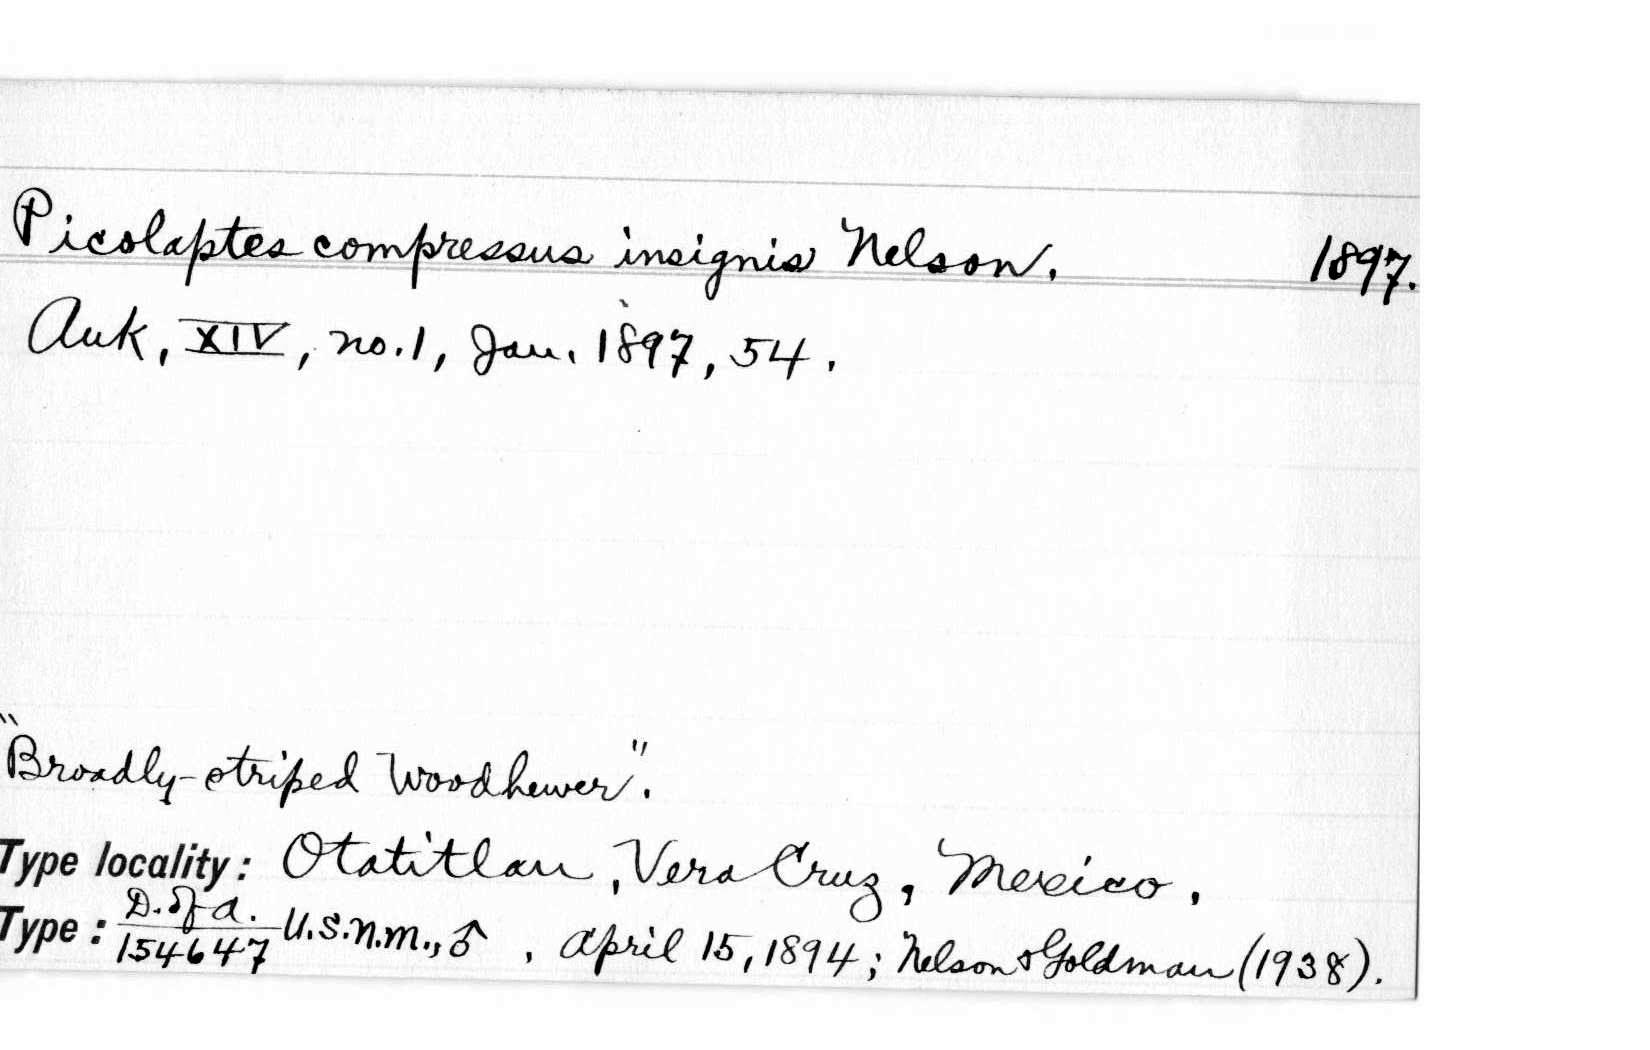 Picolaptes compressus insignis Nelson. 1897.
Auk, XIV, no. 1, Jan. 1897, 54.
"Broadly-striped Woodhewer".
Type locality: Otatitlan, Vera Cruz, Mexico.
Type: D. of A. 154647 U.S.N.M., ♂, April 15, 1894; Nelson & Goldman (1938).